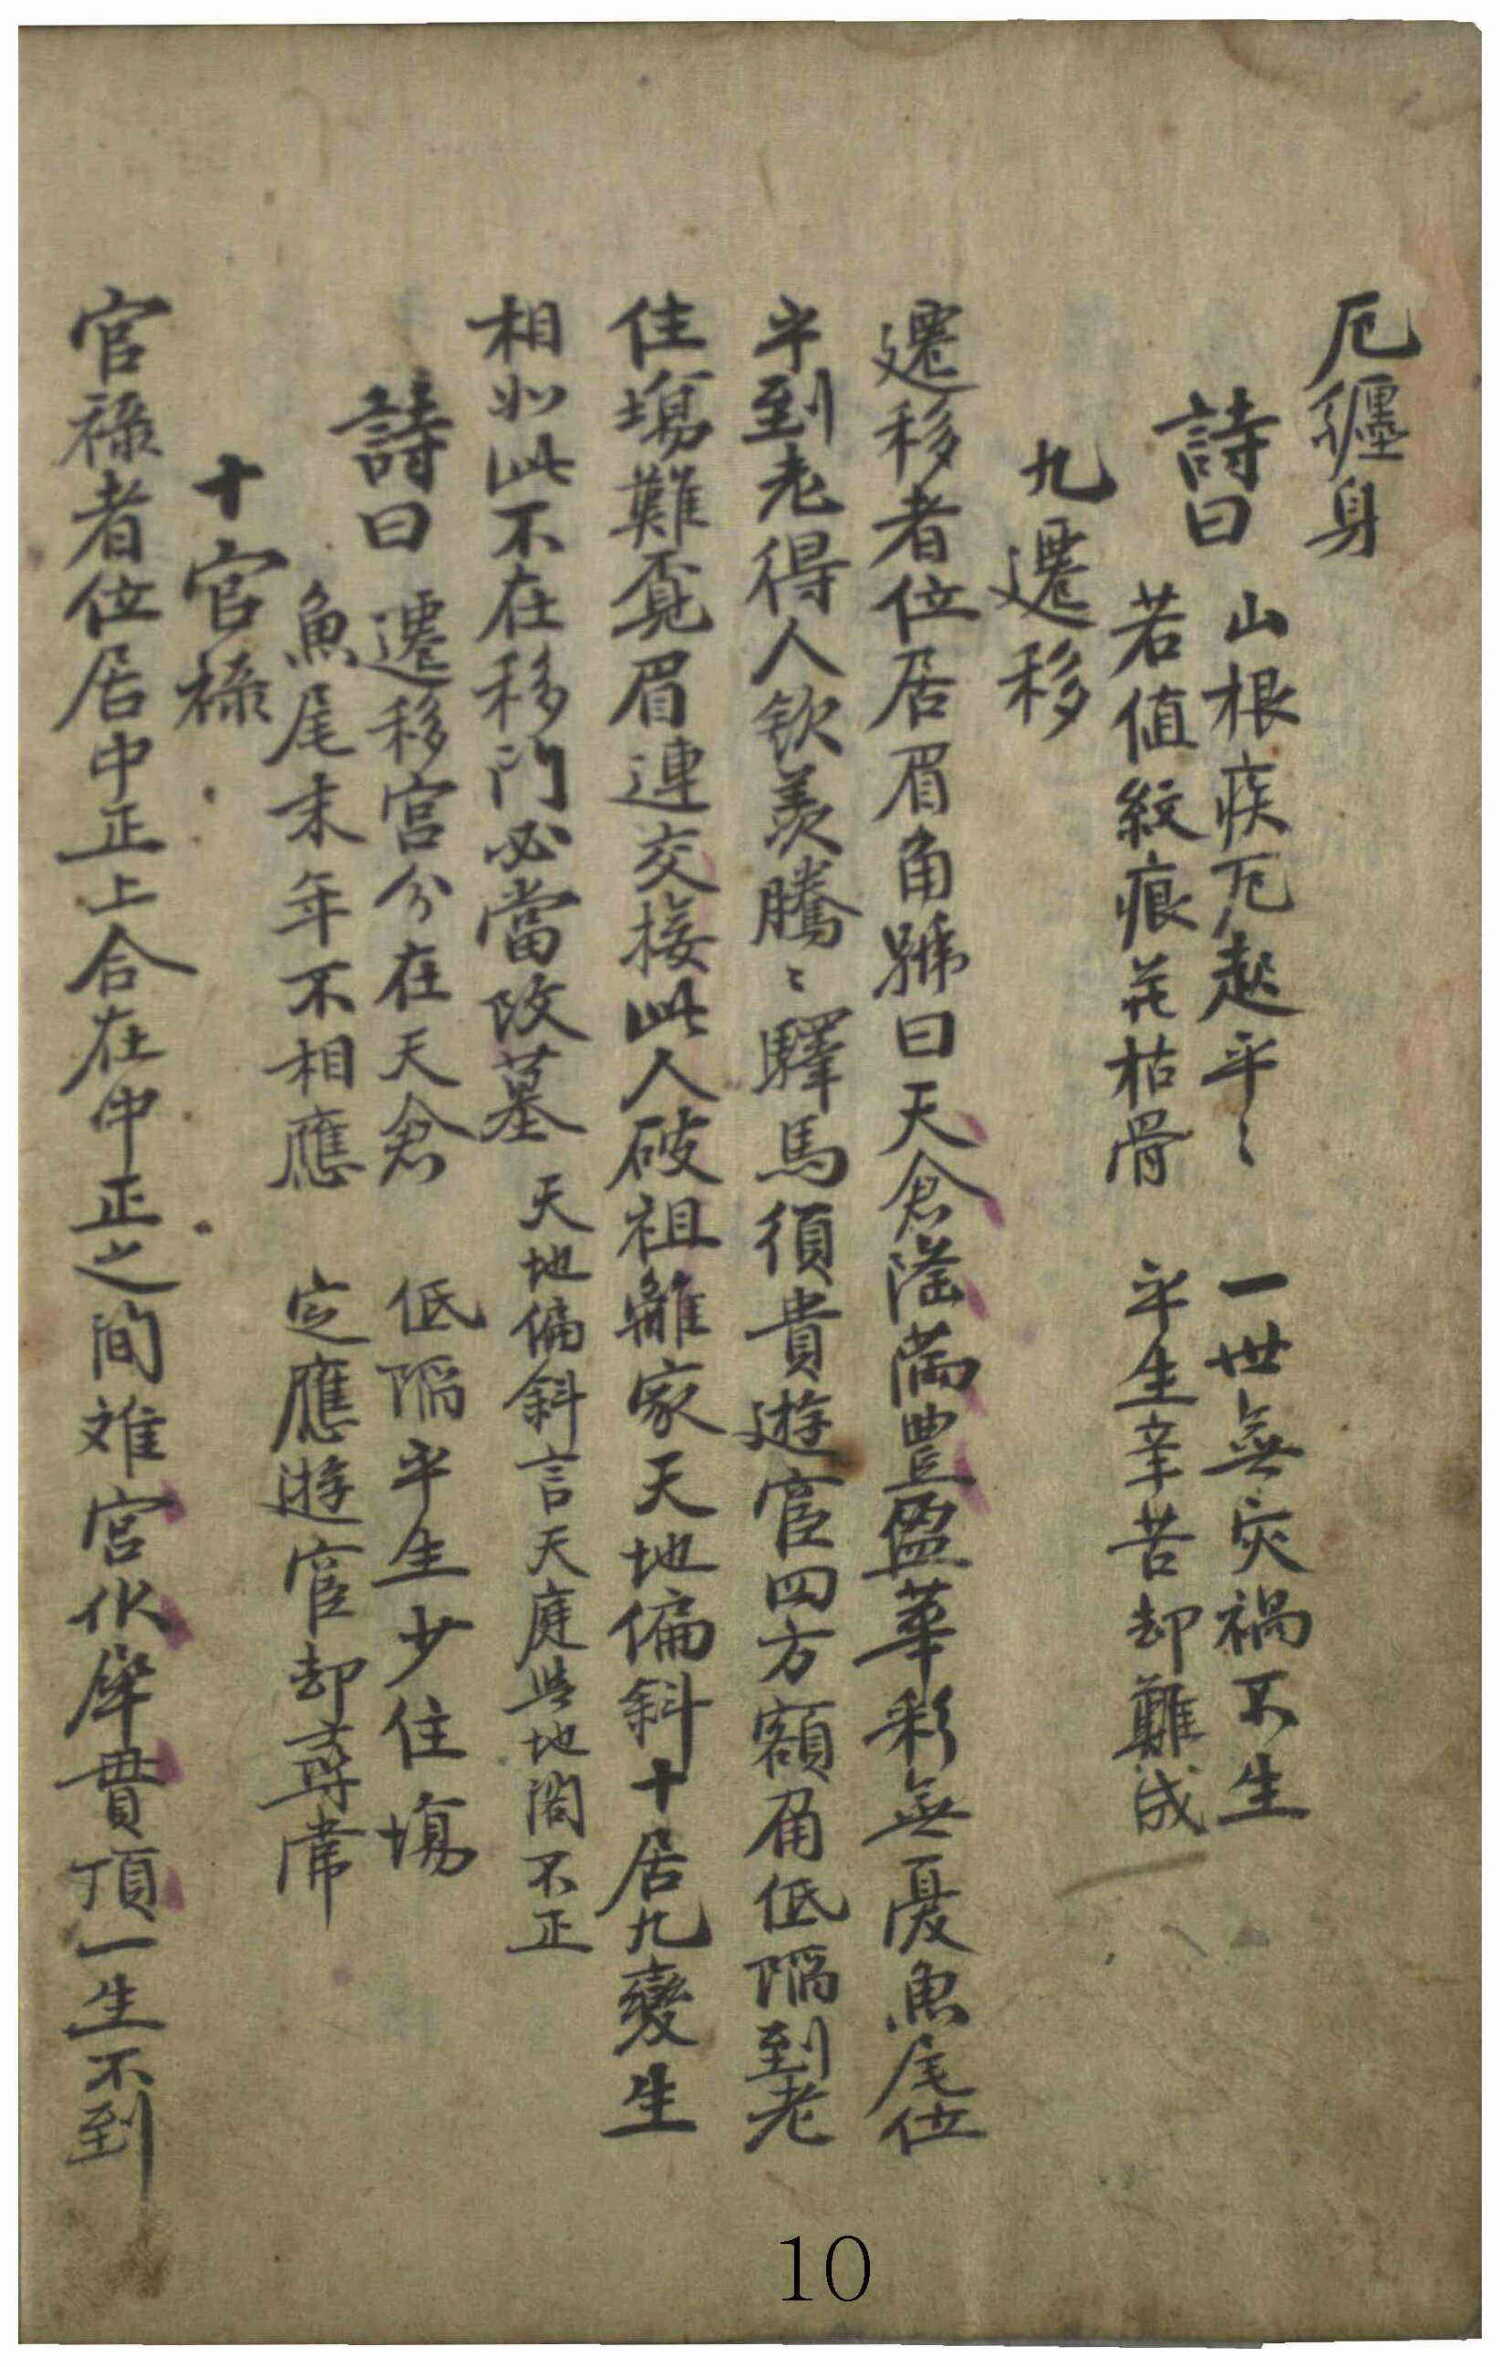 厄纏身
詩曰
山根疾厄起平〻 一世無灾禍不生
若值紋痕并枯骨 平生辛苦却難成
九遷移
遷移者位居眉角號曰天倉隆滿豐盈華彩無憂魚尾位
平到老得人欽羨騰〻驛馬須貴遊宦四方額角低陷到老
住塲難覔眉連交接此人破祖離家天地偏斜十居九變生
相如此不在移門必當改墓 天地偏斜言天庭與地閣不正
詩曰
遷移宮分在天倉 低陷平生少住塲
魚尾末年不相應 定應遊宦却尋常
十官祿
官祿者位居中正上合在中正之間难宮伏犀貫頂一生不到
10